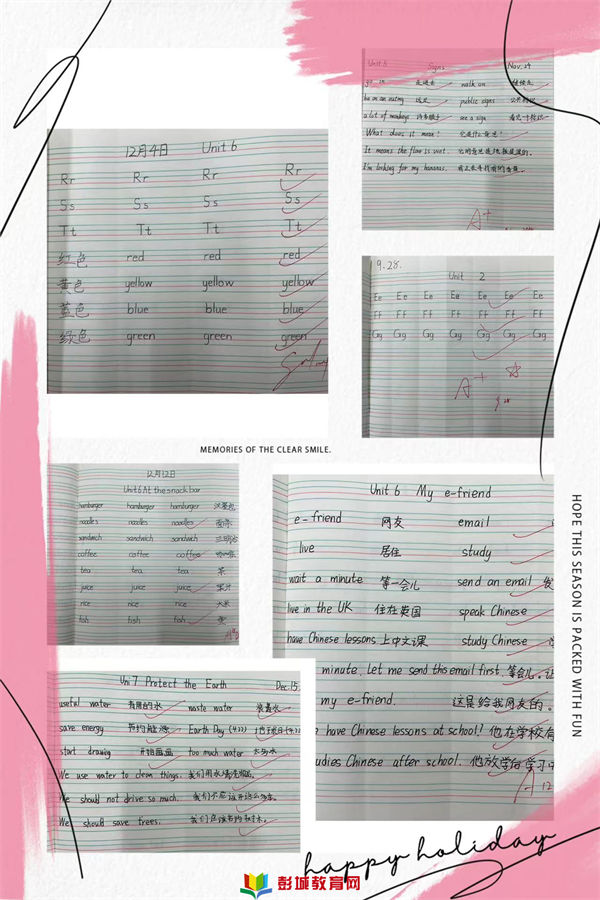 12月4日 Unit 6
Rr Rr Rr Rr
Ss Ss Ss Ss
Tt Tt Tt Tt
红色 red red red
黄色 yellow yellow yellow
蓝色 blue blue blue
绿色 green green green
Unit 5 Signs Nov. 24
go in 走进去 walk on 继续走
be on an outing 远足 public signs 公共标识
a lot of monkeys 许多猴子 see a sign 看见一个标识
What does it mean? 它是什么意思?
It means the floor is wet. 它的意思是地板是湿的。
I'm looking for my bananas. 我正在寻找我的香蕉。
A+
9.28.
Unit 2
Ee Ee Ee Ee Ee Ee Ee
Ff Ff Ff Ff Ff Ff Ff
Gg Gg Gg Gg Gg Gg Gg
A+ ☆
MEMORIES OF THE CLEAR SMILE.
12月12日
Unit 6 At the snack bar
hamburger hamburger hamburger 汉堡包
noodles noodles noodles 面条
sandwich sandwich sandwich 三明治
coffee coffee coffee 咖啡
tea tea tea 茶
juice juice juice 果汁
rice rice rice 大米
fish fish fish 鱼
Unit 6 My e-friend
e-friend 网友 email
live 居住 study
wait a minute 等一会儿 send an email 发
live in the UK 住在英国 speak Chinese
have Chinese lessons 上中文课 study Chinese 学
minute. Let me send this email first. 等会儿. 让
my e-friend. 这是给我网友的。
have Chinese lessons at school? 他在学校有
udies Chinese after school. 他放学后学习中
A
12
Uni 7 Protect the Earth Dec.15
useful water 有用的水 waste water 浪费水
save energy 节约能源 Earth Day (4.22) 地球日(4.22)
start drawing 开始画画 too much water 太多水
We use water to clean things. 我们用水清洗物品。
We should not drive so much. 我们不应该开这么多车。
We should save trees. 我们应该节约树木。
HOPE THIS SEASON IS PACKED WITH FUN
happy holiday
彭城教育网